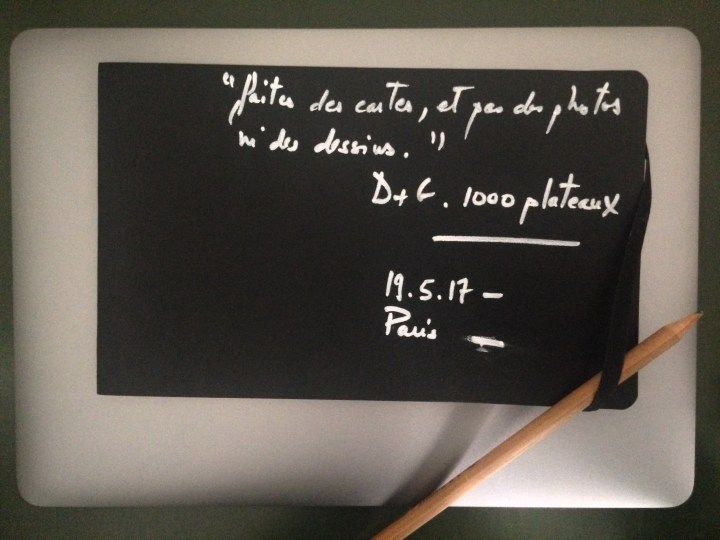 "faites des cartes, et pas des photos
ni des dessins."
D+G. 1000 plateaux
19.5.17 -
Paris